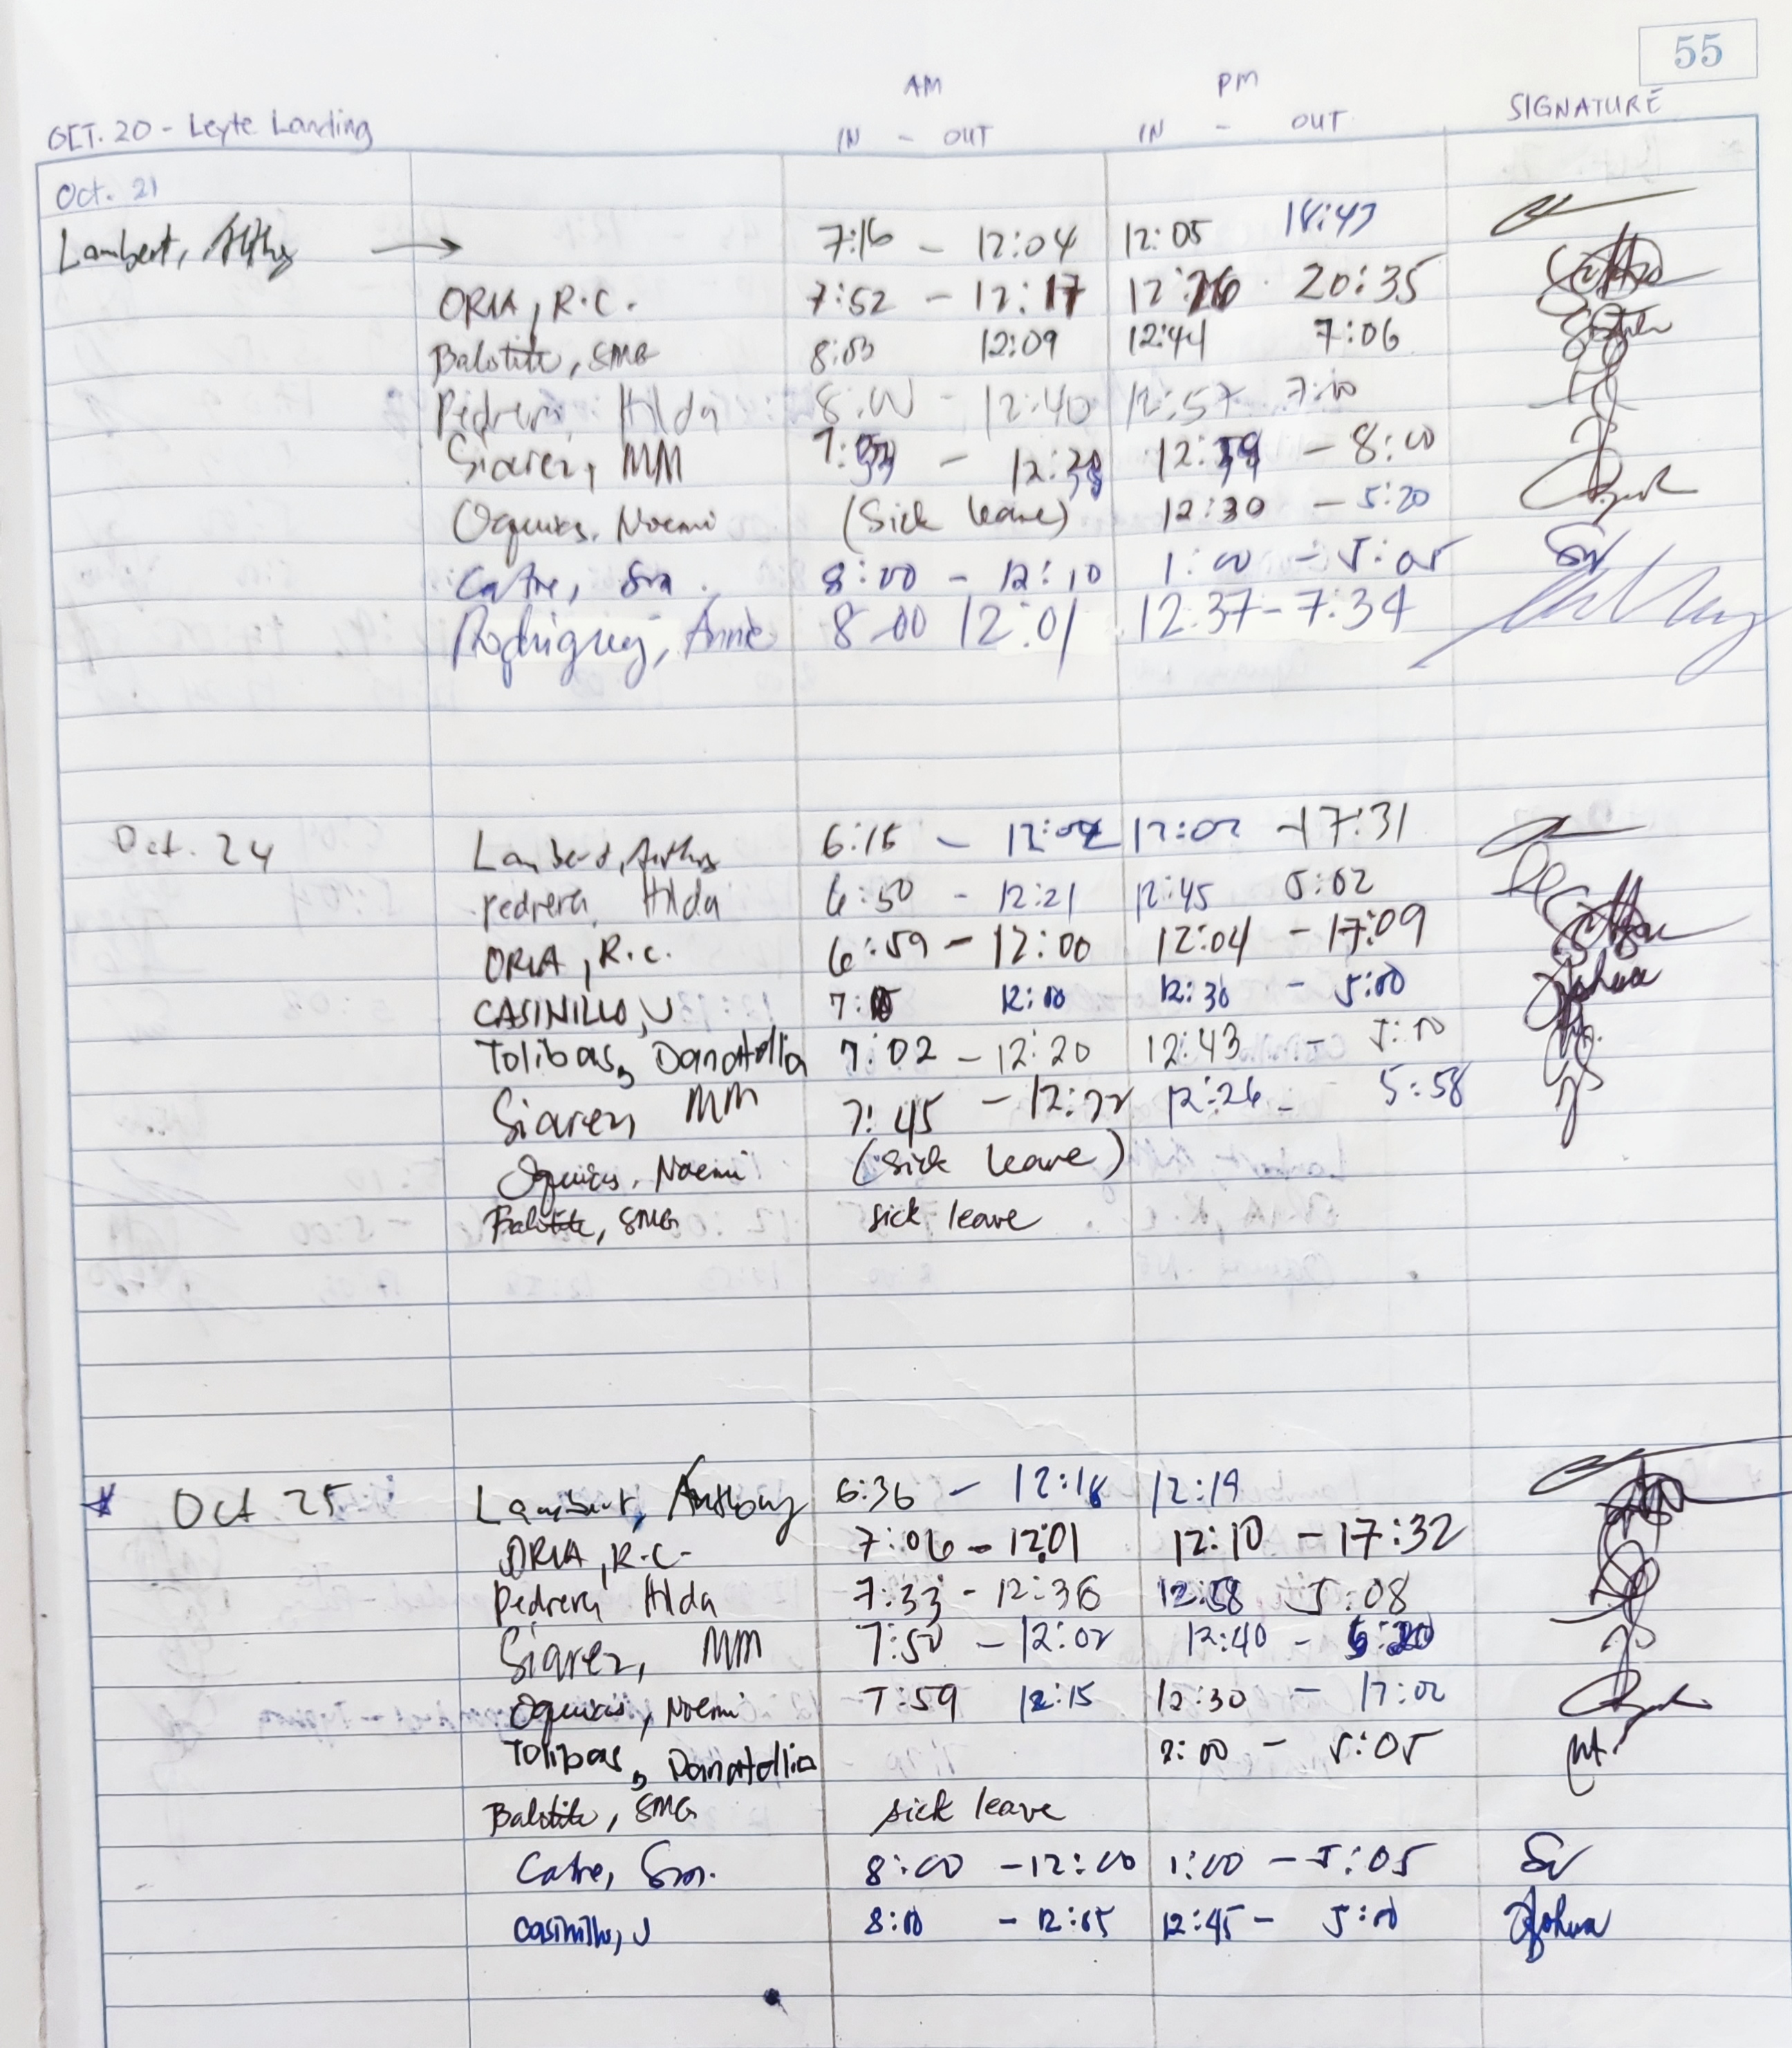 55
AM PM
OCT. 20 - Leyte Landing IN - OUT IN - OUT SIGNATURE
Oct. 21
Lambert, → 7:16 - 12:04 12:05 18:43
ORIA, R.C. 7:52 - 12:17 12:26 20:35
Balotite, SMG 8:03 12:09 12:44 7:06
Pedrera, Hilda 8:00 - 12:40 12:57 7:10
Siarez, MM - 12:38 12:39 - 8:00
Oquias, Noemi (Sick leave) 12:30 - 5:20
Catre, Sra. 8:00 - 12:10 1:00 - 5:05
Rodriguez, Annie 8:00 12:01 12:37 - 7:34
Oct. 24 Lambert, 6:15 - 12:02 - 17:31
Pedrera, Hilda 6:50 - 12:21 12:45 5:02
ORIA, R.C. 6:59 - 12:00 12:04 - 17:09
CASINILLO, J 12:10 12:30 - 5:00 Joshua
Tolibas, Donatella 7:02 - 12:20 12:43 - 5:10
Siarez, MM 7:45 - 12:22 12:26 - 5:58
Oquias, Noemi (sick leave)
Balotite, SMG sick leave
Oct 25 Lambert, Anthony 6:36 - 12:18 12:19
ORIA, R.C. 7:06 - 12:01 12:10 - 17:32
Pedrera, Hilda 7:33 - 12:36 12:58 5:08
Siarez, MM 7:50 - 12:02 12:40 -
Oquias, Noemi 7:59 12:15 12:30 - 17:02
Tolibas, Donatella - 5:05
Balotite, SMG sick leave
Catre, Sra. 8:00 - 12:00 1:00 - 5:05
Casinillo, J 8:00 - 12:05 12:45 - 5:00 Joshua